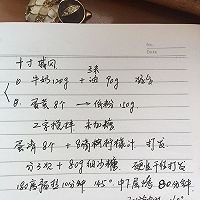 十寸戚风
① 牛奶120g + 油90g
② 蛋黄8个 → 低粉150g
Z字搅拌
蛋清8个 + 8滴柠檬汁 打发
分3次 + 80g细砂糖. 硬性干性打发
预热10分钟 145° 中下层 80分钟.